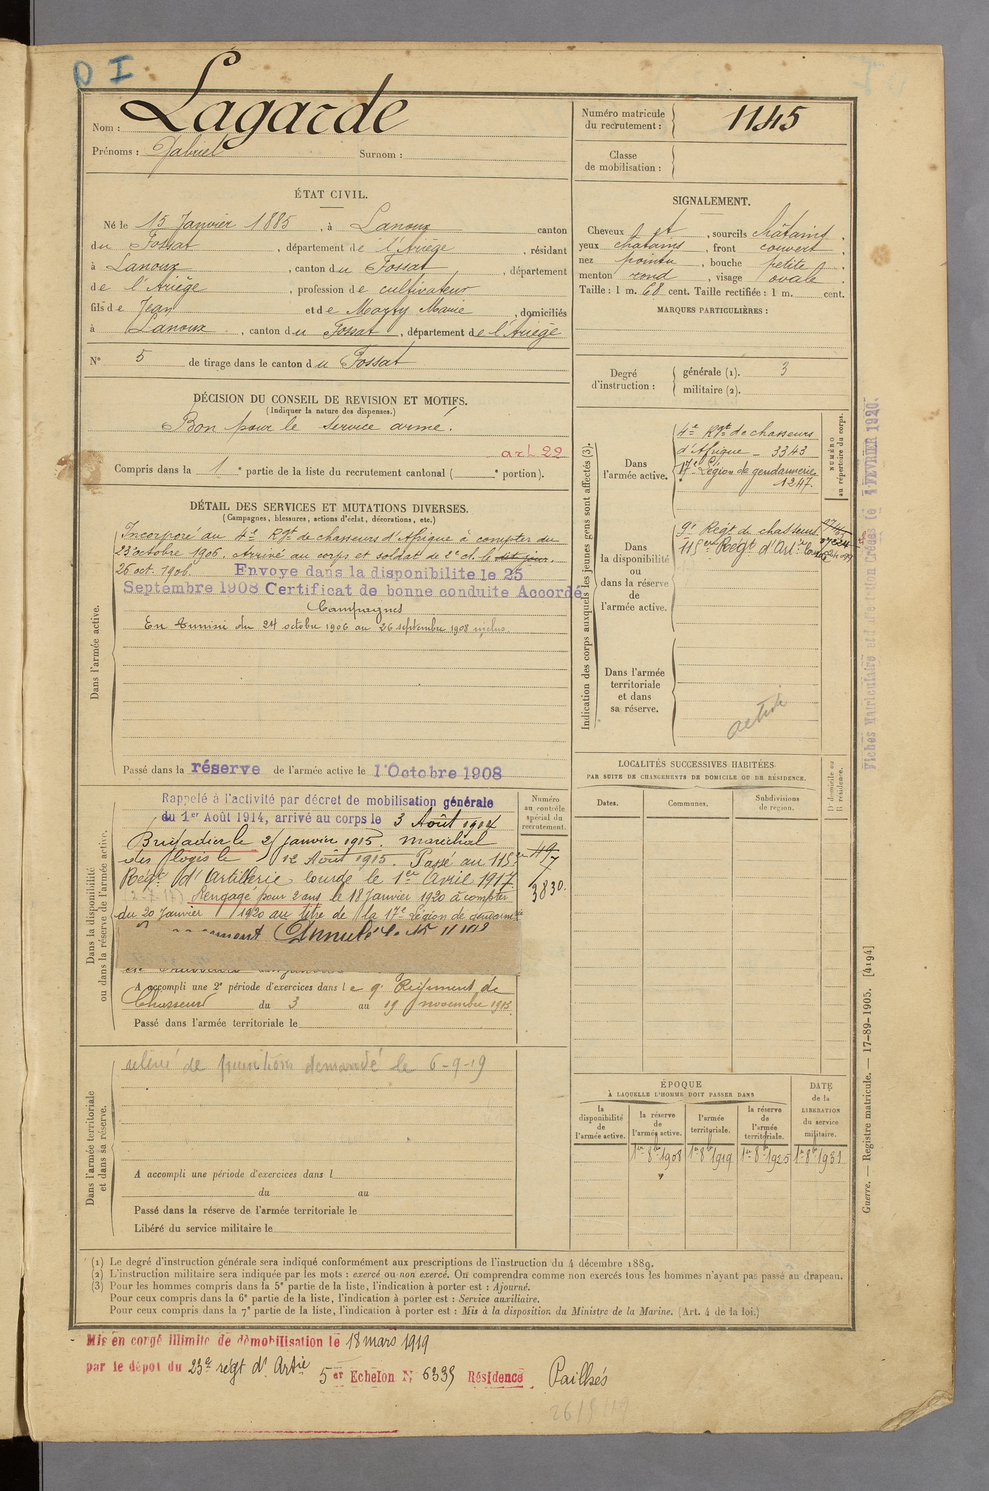 D I
Nom : Lagarde
Prénoms : Gabriel Surnom :
Numéro matricule du recrutement : 1145
Classe de mobilisation :
ÉTAT CIVIL.
Né le 15 Janvier 1885, à Lanoux canton
du Fossat, département de l'Ariège, résidant
à Lanoux, canton du Fossat, département
de l'Ariège, profession de cultivateur
fils de Jean et de Marty Marie, domiciliés
à Lanoux, canton du Fossat, département de l'Ariège
N° 5 de tirage dans le canton du Fossat
SIGNALEMENT.
Cheveux et, sourcils châtains.
yeux châtains, front couvert.
nez pointu, bouche petite.
menton rond, visage ovale.
Taille : 1 m. 68 cent. Taille rectifiée : 1 m. cent.
MARQUES PARTICULIÈRES :
Degré d'instruction : générale (1). 3
militaire (2).
DÉCISION DU CONSEIL DE REVISION ET MOTIFS.
(Indiquer la nature des dispenses.)
Bon pour le service armé.
art 22
Compris dans la 1e partie de la liste du recrutement cantonal ( e portion).
DÉTAIL DES SERVICES ET MUTATIONS DIVERSES.
(Campagnes, blessures, actions d'éclat, décorations, etc.)
Dans l'armée active.
Incorporé au 4e Rgt de chasseurs d'Afrique à compter du
23 octobre 1906. Arrivé au corps et soldat de 2e cl. le dit jour.
25 oct. 1906. Envoye dans la disponibilite le 25
Septembre 1908 Certificat de bonne conduite Accordé
Campagnes
En Tunisie du 24 octobre 1906 au 26 septembre 1908 inclus.
Passé dans la réserve de l'armée active le 1 Octobre 1908
Dans la disponibilité ou dans la réserve de l'armée active.
Rappelé à l'activité par décret de mobilisation générale
du 1er Août 1914, arrivé au corps le 3 Août 1914
Brigadier le 2 janvier 1915. maréchal
des logis le 12 Août 1915. Passé au 115e
Régt d'Artillerie lourde le 1er Avril 1917.
Rengagé pour 2 ans le 18 Janvier 1920 à compter
du 20 Janvier 1920 au titre de la 17e Légion de gendarmerie
Annulé le 15 11 1919
A accompli une 2e période d'exercices dans le 9e Régiment de
Chasseurs du 3 au 19 novembre 1913.
Passé dans l'armée territoriale le
Numéro au contrôle spécial du recrutement.
3830.
Dans l'armée territoriale et dans sa réserve.
relevé de punitions demandé le 6-9-19
A accompli une période d'exercices dans l
du au
Passé dans la réserve de l'armée territoriale le
Libéré du service militaire le
Indication des corps auxquels les jeunes gens sont affectés (3).
NUMÉRO au répertoire du corps.
Dans l'armée active.
4e Rgt de chasseurs
d'Afrique - 3343
17e Légion de gendarmerie
1247.
Dans la disponibilité ou dans la réserve de l'armée active.
9e Regt de chasseurs
115eme Régt d'Artie
Dans l'armée territoriale et dans sa réserve.
active
LOCALITÉS SUCCESSIVES HABITÉES
PAR SUITE DE CHANGEMENTS DE DOMICILE OU DE RÉSIDENCE.
Dates. Communes. Subdivisions de region. D domicile ou R résidence.
ÉPOQUE
À LAQUELLE L'HOMME DOIT PASSER DANS
la disponibilité de l'armée active. la réserve de l'armée active. l'armée territoriale. la réserve de l'armée territoriale. DATE de la LIBÉRATION du service militaire.
1er 8bre 1908 1er 8bre 1919 1er 8bre 1925 1er 8bre 1931
(1) Le degré d'instruction générale sera indiqué conformément aux prescriptions de l'instruction du 4 décembre 1889.
(2) L'instruction militaire sera indiquée par les mots : exercé ou non exercé. On comprendra comme non exercés tous les hommes n'ayant pas passé au drapeau.
(3) Pour les hommes compris dans la 5e partie de la liste, l'indication à porter est : Ajourné.
Pour ceux compris dans la 6e partie de la liste, l'indication à porter est : Service auxiliaire.
Pour ceux compris dans la 7e partie de la liste, l'indication à porter est : Mis à la disposition du Ministre de la Marine. (Art. 4 de la loi.)
Mis en congé illimité de démobilisation le 18 mars 1919
par le dépot du 23e régt d'Artie 5er Echelon N° 6335 Résidence Pailhés
Fiches Matriculaire et d'affectation Créées le 4 FEVRIER 1920.
Guerre. — Registre matricule. — 17-89-1905. [4194]